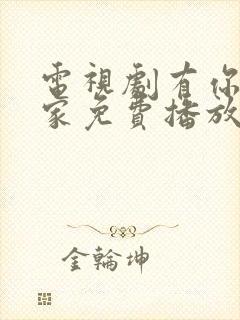 電視劇有你
家免費播放
金輪坤